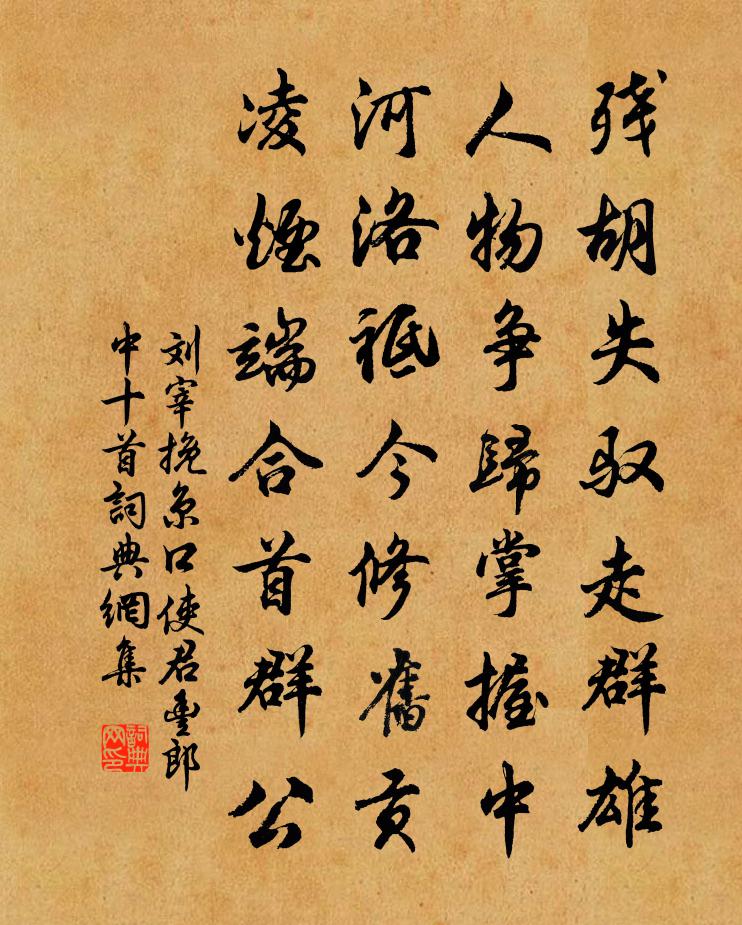 残胡失驭走群雄
人物争歸掌握中
河洛祗今修舊贡
凌煙端合首群公
刘宰挽京口使君豊郎
中十首詞典網集
詞典
网印